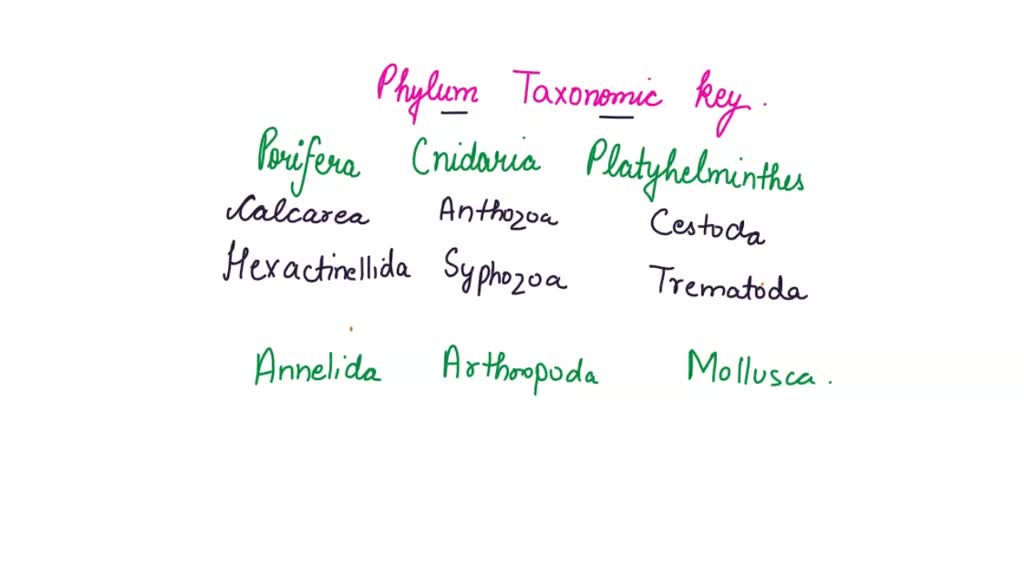 Phylum Taxonomic key.
Porifera Cnidaria Platyhelminthes
Calcarea Anthozoa Cestoda
Hexactinellida Syphozoa Trematoda
Annelida Arthropoda Mollusca.